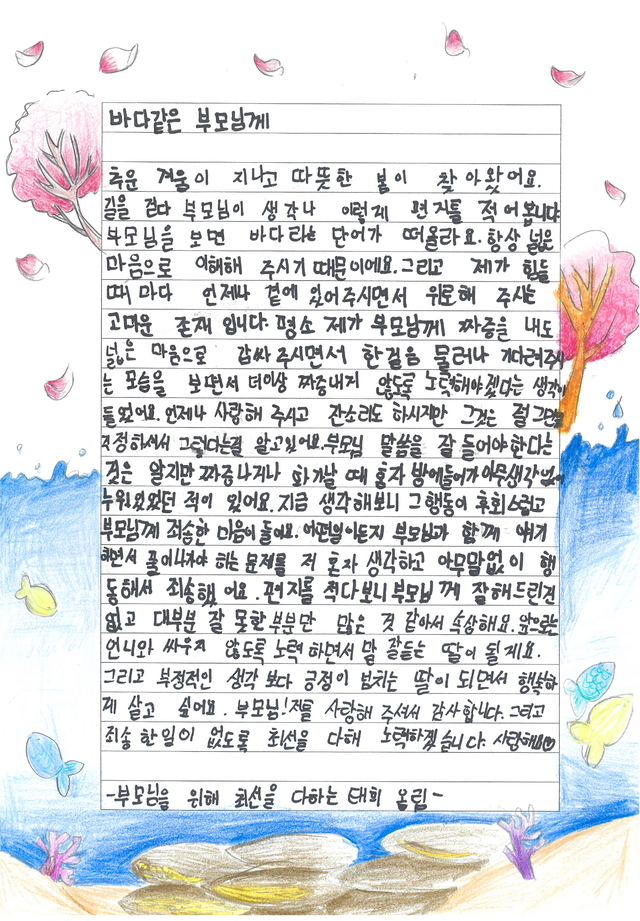 바다같은 부모님께
추운 겨울이 지나고 따뜻한 봄이 찾아왔어요.
길을 걷다 부모님이 생각나 이렇게 편지를 적어봅니다
부모님을 보면 바다라는 단어가 떠올라요. 항상 넓은
마음으로 이해해 주시기 때문이에요. 그리고 제가 힘들
때 마다 언제나 곁에 있어주시면서 위로해 주시는
고마운 존재 입니다. 평소 제가 부모님께 짜증을 내도
넓은 마음으로 감싸주시면서 한걸음 물러나 기다려주시
는 모습을 보면서 더이상 짜증내지 않도록 노력해야겠다는 생각이
들었어요. 언제나 사랑해 주시고 잔소리도 하시지만 그것은 절
걱정하셔서 그렇다는걸 알고있어요. 부모님 말씀을 잘 들어야한다는
것은 알지만 짜증나거나 화가날 때 혼자 방에들어가 아무생각없이
누워있었던 적이 있어요. 지금 생각해보니 그 행동이 후회스럽고
부모님께 죄송한 마음이 들어요. 어떤일이든지 부모님과 함께 얘기
하면서 풀어나가야 하는 문제를 저 혼자 생각하고 아무말없이 행
동해서 죄송했어요. 편지를 적다보니 부모님께 잘해드린건
없고 대부분 잘 못한 부분만 많은 것 같아서 속상해요. 앞으로는
언니와 싸우지 않도록 노력하면서 말 잘듣는 딸이 될게요.
그리고 부정적인 생각 보다 긍정이 넘치는 딸이 되면서 행복하
게 살고 싶어요. 부모님! 저를 사랑해 주셔서 감사합니다. 그리고
죄송한일이 없도록 최선을 다해 노력하겠습니다. 사랑해요♡
-부모님을 위해 최선을 다하는 태희 올림-